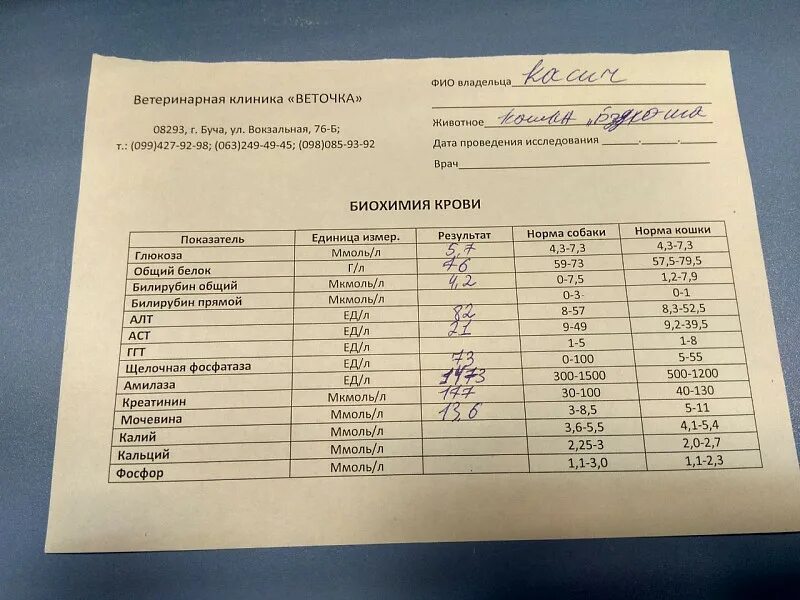 Ветеринарная клиника «ВЕТОЧКА»
08293, г. Буча, ул. Вокзальная, 76-Б;
т.: (099)427-92-98; (063)249-49-45; (098)085-93-92
ФИО владельца Касич
Животное кошка „Бздюкоша
Дата проведения исследования ______.______.______
Врач
БИОХИМИЯ КРОВИ
Показатель Единица измер. Результат Норма собаки Норма кошки
Глюкоза Ммоль/л 5,7 4,3-7,3 4,3-7,3
Общий белок Г/л 76 59-73 57,5-79,5
Билирубин общий Мкмоль/л 4,2 0-7,5 1,2-7,9
Билирубин прямой Мкмоль/л 0-3 0-1
АЛТ ЕД/л 82 8-57 8,3-52,5
АСТ ЕД/л 21 9-49 9,2-39,5
ГГТ ЕД/л 1-5 1-8
Щелочная фосфатаза ЕД/л 73 0-100 5-55
Амилаза ЕД/л 1473 300-1500 500-1200
Креатинин Мкмоль/л 177 30-100 40-130
Мочевина Ммоль/л 13,6 3-8,5 5-11
Калий Ммоль/л 3,6-5,5 4,1-5,4
Кальций Ммоль/л 2,25-3 2,0-2,7
Фосфор Ммоль/л 1,1-3,0 1,1-2,3